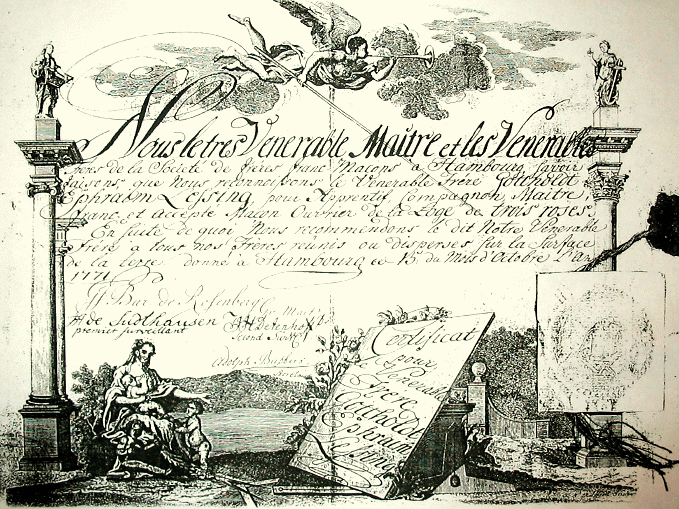 Nous le tres Venerable Maitre et les Venerables
freres de la Societé de frères franc Maçons a Hambourg savoir
faisons que Nous reconnoissons le Venerable frere Gotholdt
Ephraim Lessing pour Apprentif Compagnon Maitre,
franc et accepté Maçon Ouvrier de la Loge de trois roses.
En suite de quoi Nous recommendons le dit Notre Venerable
Frère a tous nos Frères reunis ou disperses sur la Surface
de la terre. donné a Hambourg ce 15 du Mois d'Octobre L'an
1771
Bar de Rosenberg
de Sudthausen
premier surveillant
Second
Adolph
Certificat
pour
Frere